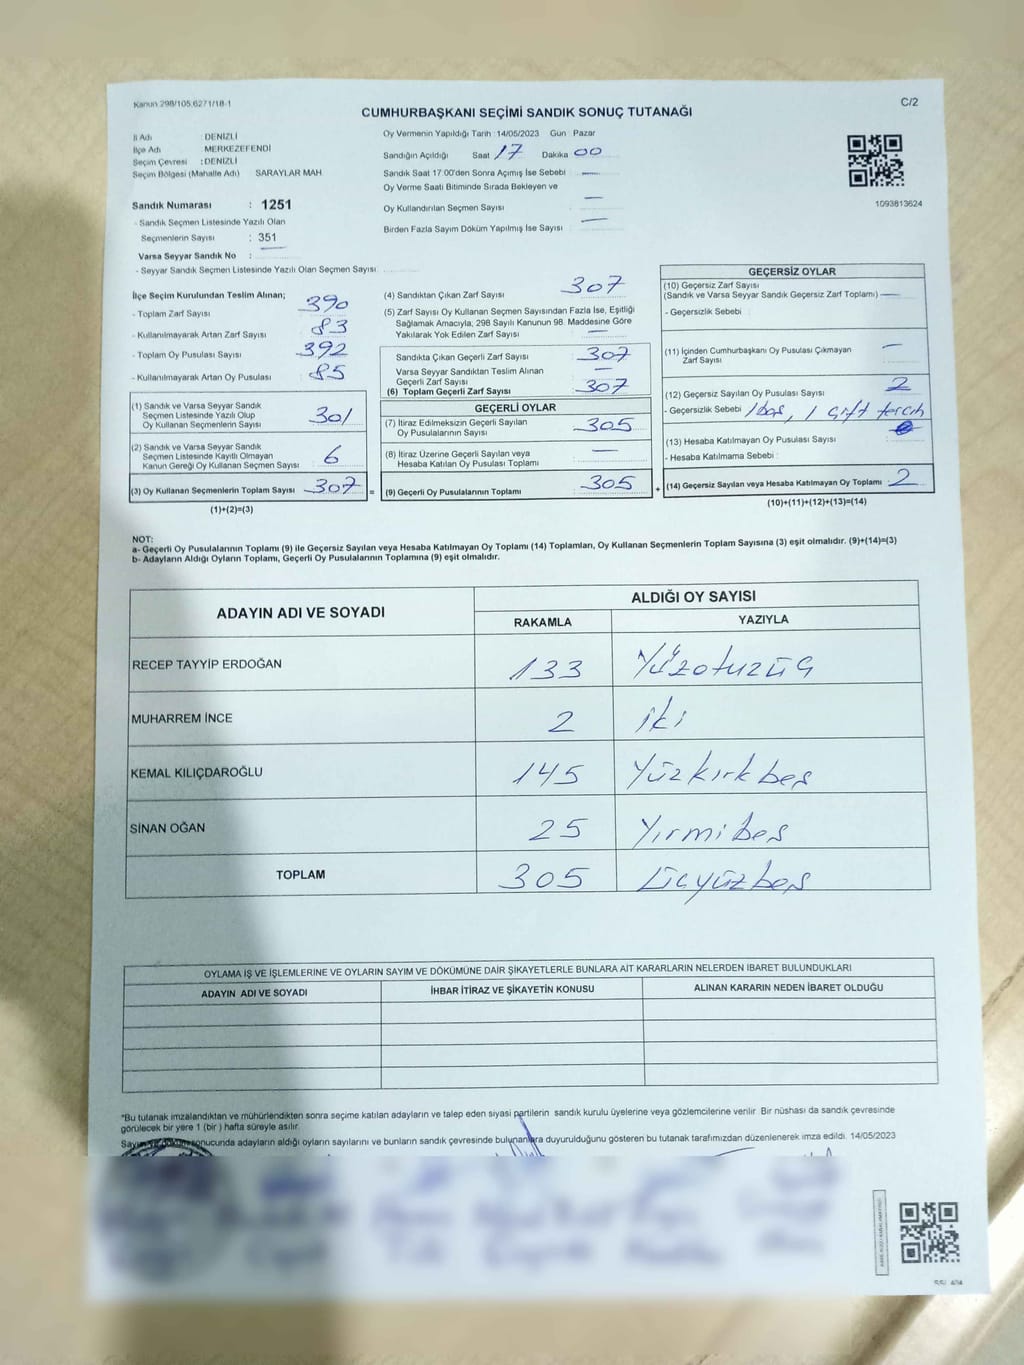 Kanun 298/105,6271/18-1
C/2
CUMHURBAŞKANI SEÇİMİ SANDIK SONUÇ TUTANAĞI
İl Adı DENİZLİ
İlçe Adı : MERKEZEFENDİ
Seçim Çevresi : DENİZLİ
Seçim Bölgesi (Mahalle Adı) SARAYLAR MAH.
Oy Vermenin Yapıldığı Tarih : 14/05/2023 Gün : Pazar
Sandığın Açıldığı Saat 17 Dakika 00
Sandık Saat 17:00'den Sonra Açımış İse Sebebi —
Oy Verme Saati Bitiminde Sırada Bekleyen ve
Oy Kullandırılan Seçmen Sayısı —
Birden Fazla Sayım Döküm Yapılmış İse Sayısı —
1093813624
Sandık Numarası : 1251
- Sandık Seçmen Listesinde Yazılı Olan
Seçmenlerin Sayısı : 351
Varsa Seyyar Sandık No : —
- Seyyar Sandık Seçmen Listesinde Yazılı Olan Seçmen Sayısı
İlçe Seçim Kurulundan Teslim Alınan;
- Toplam Zarf Sayısı 390
- Kullanılmayarak Artan Zarf Sayısı 83
- Toplam Oy Pusulası Sayısı 392
- Kullanılmayarak Artan Oy Pusulası 85
(1) Sandık ve Varsa Seyyar Sandık
Seçmen Listesinde Yazılı Olup
Oy Kullanan Seçmenlerin Sayısı 301
(2) Sandık ve Varsa Seyyar Sandık
Seçmen Listesinde Kayıtlı Olmayan
Kanun Gereği Oy Kullanan Seçmen Sayısı 6
(3) Oy Kullanan Seçmenlerin Toplam Sayısı 307 =
(1)+(2)=(3)
(4) Sandıktan Çıkan Zarf Sayısı 307
(5) Zarf Sayısı Oy Kullanan Seçmen Sayısından Fazla İse, Eşitliği
Sağlamak Amacıyla; 298 Sayılı Kanunun 98. Maddesine Göre
Yakılarak Yok Edilen Zarf Sayısı —
Sandıkta Çıkan Geçerli Zarf Sayısı 307
Varsa Seyyar Sandıktan Teslim Alınan
Geçerli Zarf Sayısı —
(6) Toplam Geçerli Zarf Sayısı 307
GEÇERLİ OYLAR
(7) İtiraz Edilmeksizin Geçerli Sayılan
Oy Pusulalarının Sayısı 305
(8) İtiraz Üzerine Geçerli Sayılan veya
Hesaba Katılan Oy Pusulası Toplamı —
(9) Geçerli Oy Pusulalarının Toplamı 305 +
GEÇERSİZ OYLAR
(10) Geçersiz Zarf Sayısı
(Sandık ve Varsa Seyyar Sandık Geçersiz Zarf Toplamı) —
- Geçersizlik Sebebi :
(11) İçinden Cumhurbaşkanı Oy Pusulası Çıkmayan
Zarf Sayısı —
(12) Geçersiz Sayılan Oy Pusulası Sayısı 2
- Geçersizlik Sebebi : 1 boş, 1 çift tercih
(13) Hesaba Katılmayan Oy Pusulası Sayısı
- Hesaba Katılmama Sebebi :
(14) Geçersiz Sayılan veya Hesaba Katılmayan Oy Toplamı 2
(10)+(11)+(12)+(13)=(14)
NOT:
a- Geçerli Oy Pusulalarının Toplamı (9) ile Geçersiz Sayılan veya Hesaba Katılmayan Oy Toplamı (14) Toplamları, Oy Kullanan Seçmenlerin Toplam Sayısına (3) eşit olmalıdır. (9)+(14)=(3)
b- Adayların Aldığı Oyların Toplamı, Geçerli Oy Pusulalarının Toplamına (9) eşit olmalıdır.
ADAYIN ADI VE SOYADI
ALDIĞI OY SAYISI
RAKAMLA YAZIYLA
RECEP TAYYİP ERDOĞAN 133 Yüzotuzüç
MUHARREM İNCE 2 iki
KEMAL KILIÇDAROĞLU 145 Yüzkırkbeş
SİNAN OĞAN 25 Yirmibeş
TOPLAM 305 Üçyüzbeş
OYLAMA İŞ VE İŞLEMLERİNE VE OYLARIN SAYIM VE DÖKÜMÜNE DAİR ŞİKAYETLERLE BUNLARA AİT KARARLARIN NELERDEN İBARET BULUNDUKLARI
ADAYIN ADI VE SOYADI İHBAR İTİRAZ VE ŞİKAYETİN KONUSU ALINAN KARARIN NEDEN İBARET OLDUĞU
*Bu tutanak imzalandıktan ve mühürlendikten sonra seçime katılan adayların ve talep eden siyasi partilerin sandık kurulu üyelerine veya gözlemcilerine verilir. Bir nüshası da sandık çevresinde
görülecek bir yere 1 (bir) hafta süreyle asılır.
sonucunda adayların aldığı oyların sayılarını ve bunların sandık çevresinde bulunanlara duyurulduğunu gösteren bu tutanak tarafımızdan düzenlenerek imza edildi. 14/05/2023